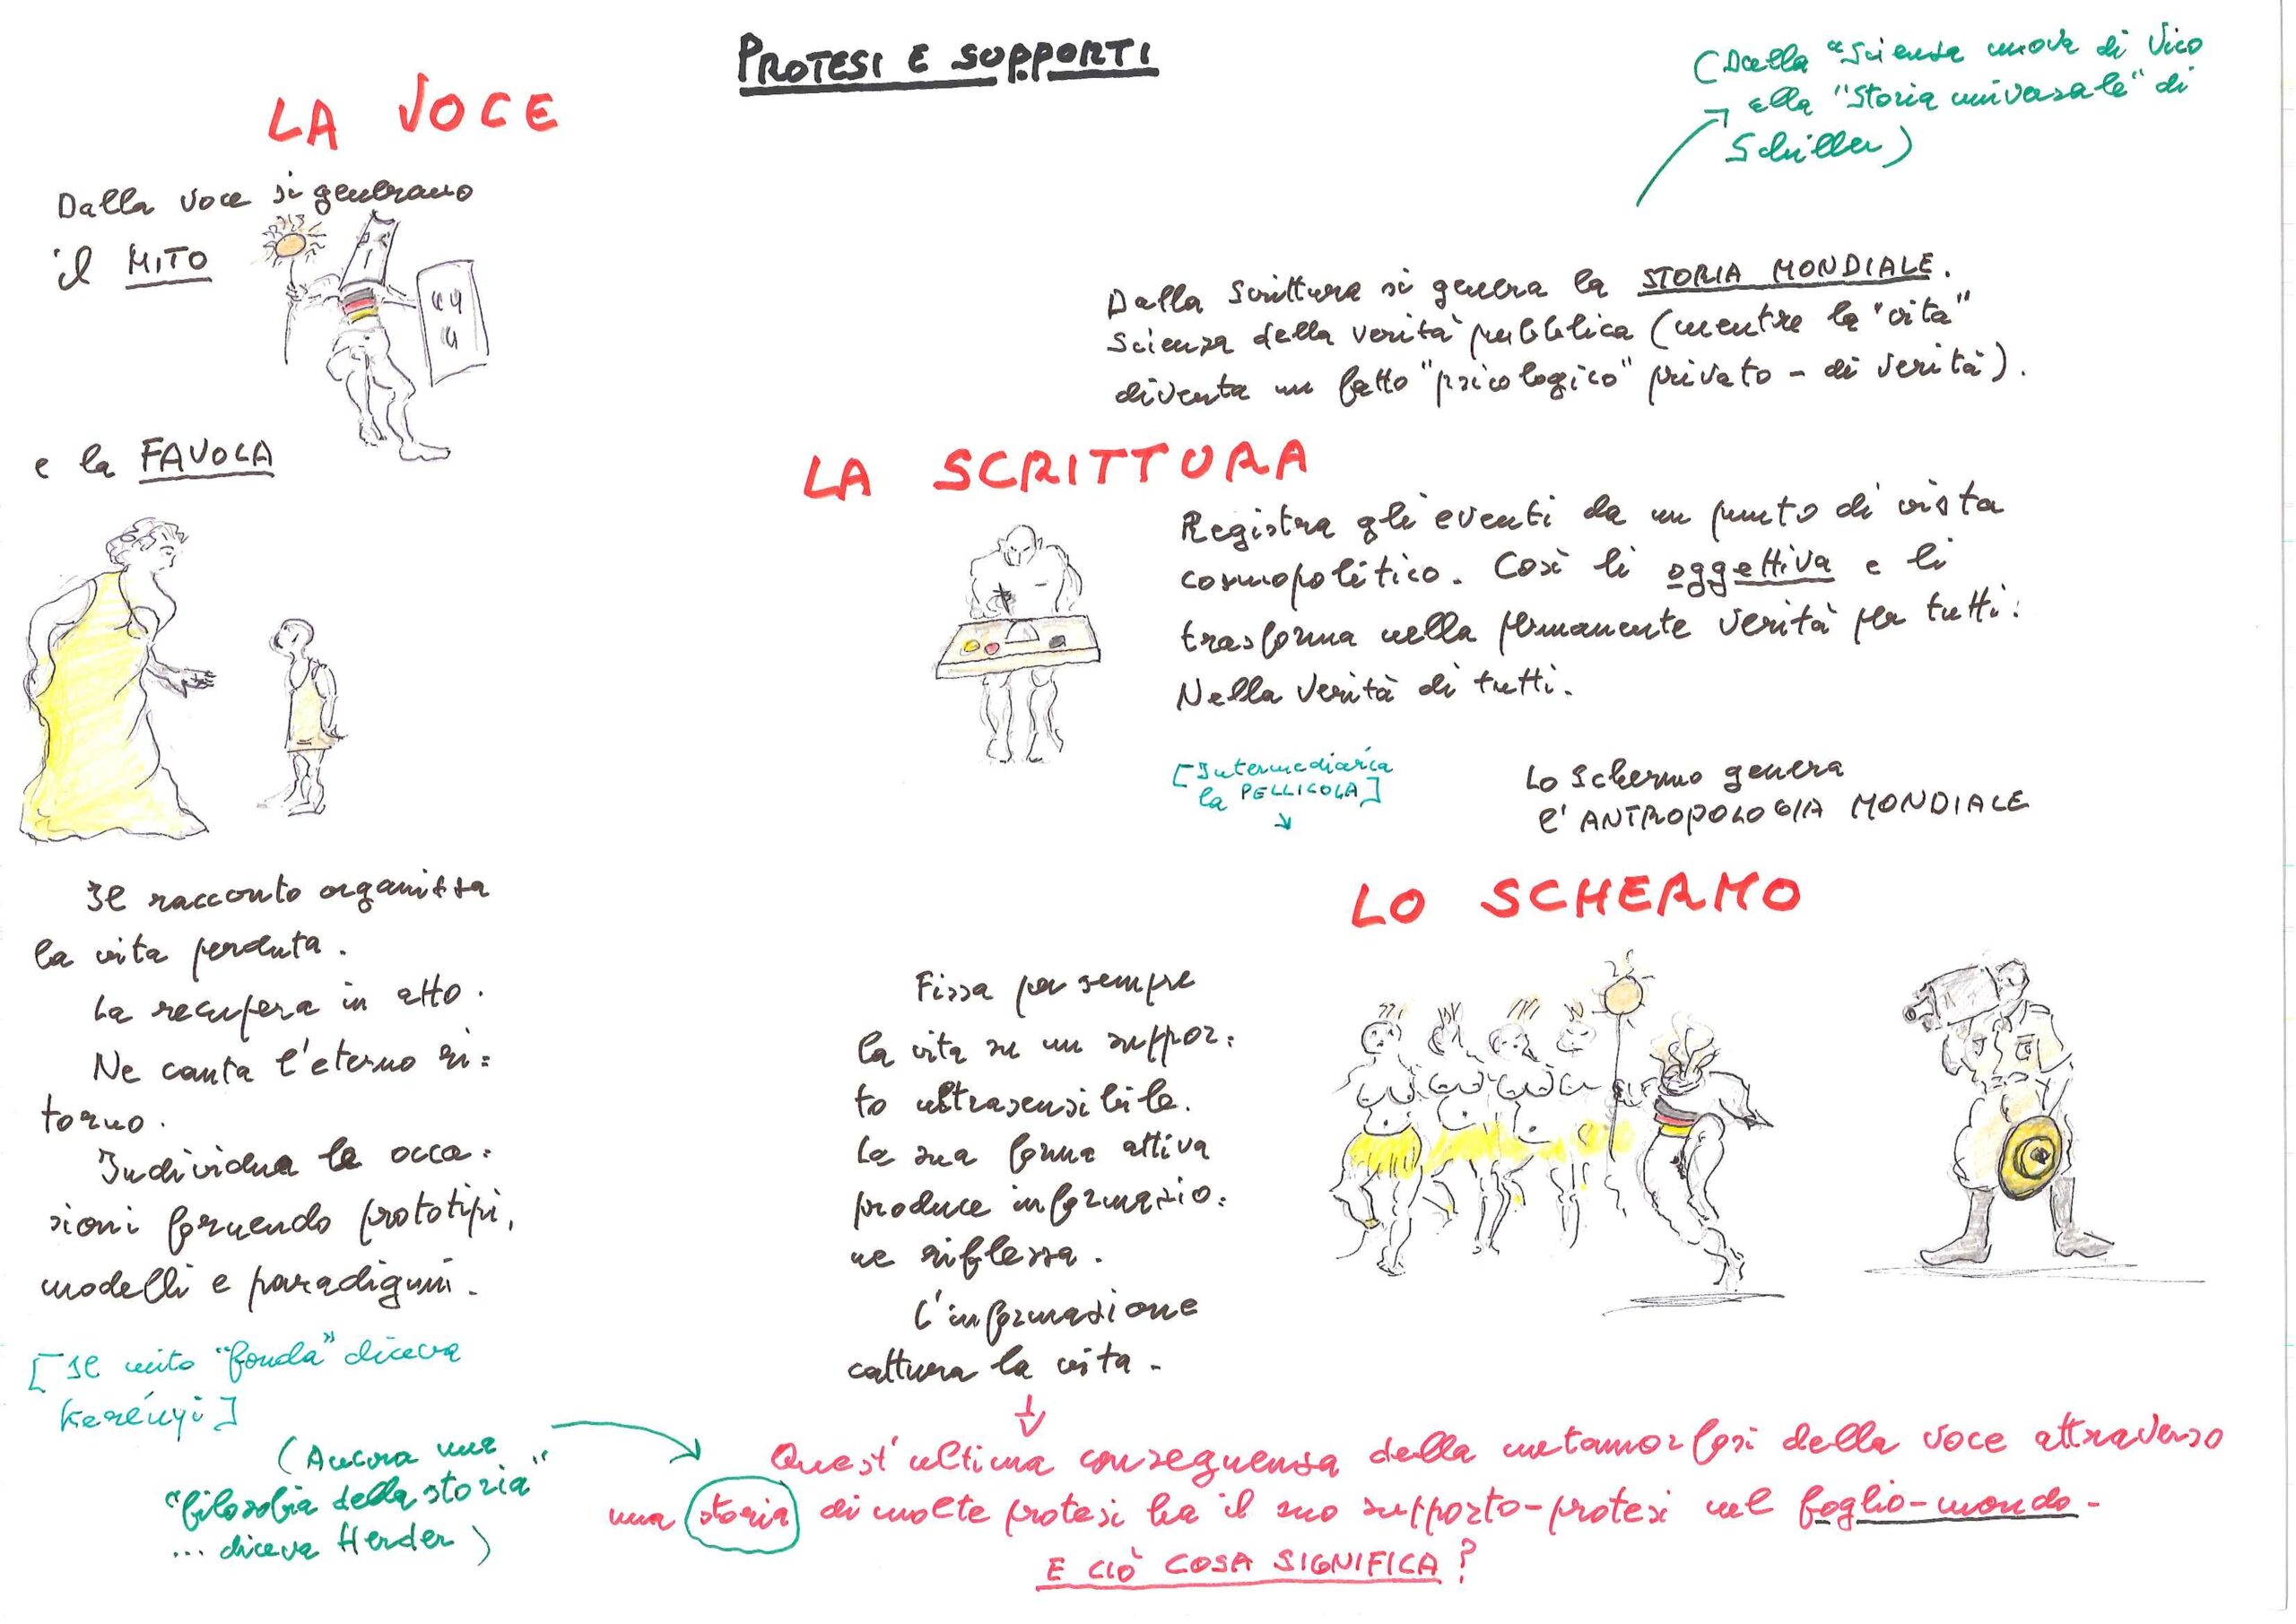 PROTESI E SUPPORTI
LA VOCE
Dalla voce si generano
il MITO
e la FAVOLA
Il racconto organizza
la vita perduta.
La recupera in atto.
Ne canta l'eterno ri=
torno.
Individua le occa=
sioni fornendo prototipi,
modelli e paradigmi.
[Il mito "fonda" diceva
Kerényi]
(Ancora una
"filosofia della storia"
... diceva Herder)
(Dalla "Scienza nuova di Vico
alla "Storia universale" di
Schiller)
Dalla Scrittura si genera la STORIA MONDIALE.
Scienza della verità pubblica (mentre la "vita"
diventa un fatto "psicologico" privato - di verità).
LA SCRITTURA
Registra gli eventi da un punto di vista
cosmopolitico. Così li oggettiva e li
trasforma nella permanente verità per tutti:
Nella Verità di tutti.
[Intermediaria
la PELLICOLA]
Lo Schermo genera
l'ANTROPOLOGIA MONDIALE
LO SCHERMO
Fissa per sempre
la vita su un suppor=
to ultrasensibile.
La sua forma attiva
produce informazio=
ne riflessa.
L'informazione
cattura la vita.
Quest'ultima conseguenza della metamorfosi della voce attraverso
una storia di molte protesi ha il suo supporto-protesi nel foglio-mondo.
E CIÒ COSA SIGNIFICA?